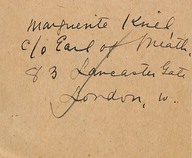 Marguerite Kriel
c/o Earl of Meath.
83 Lancaster Gate
London, W.